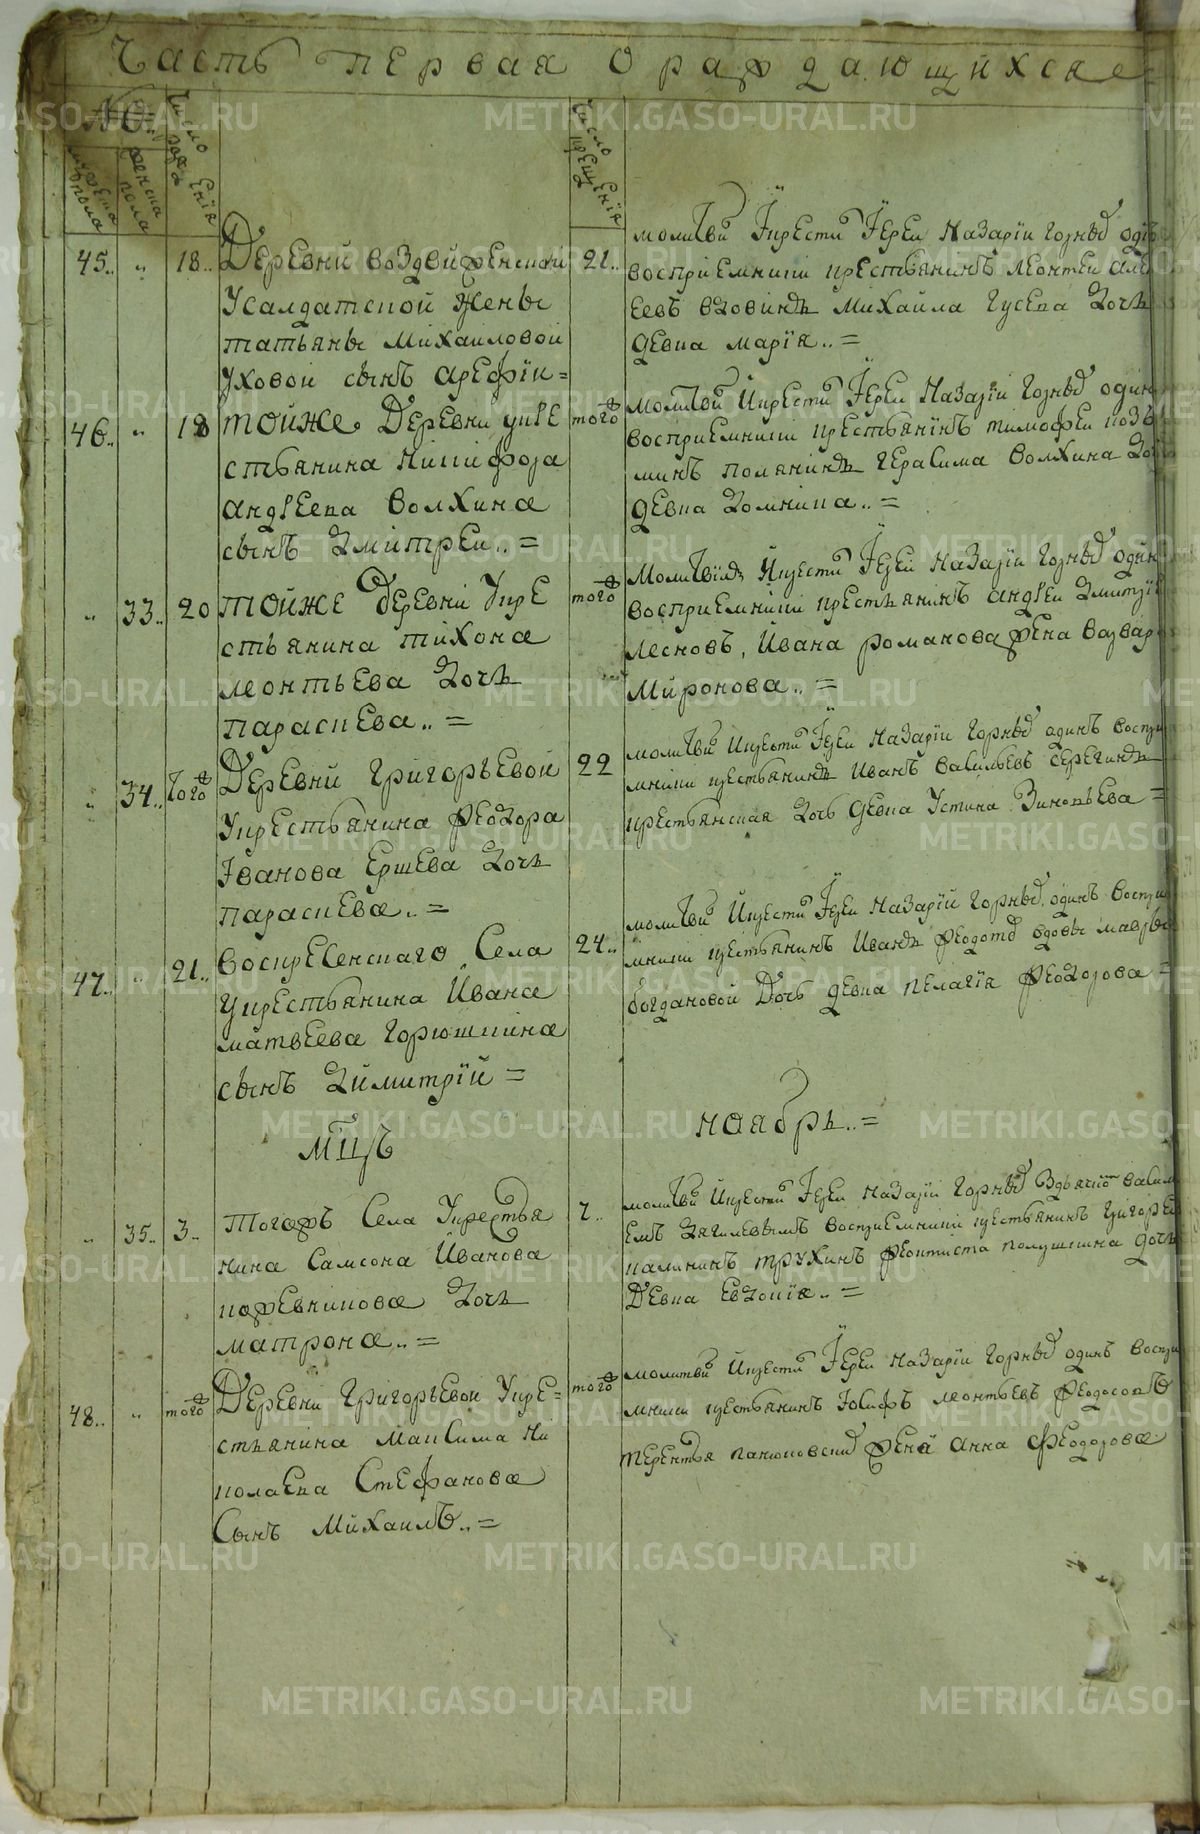 Часть первая о раждающихся
№
мужеска пола
женска пола
число рожденія
число крещенія
45.. „ 18..
Деревни воздвиженской
у салдатской жены
татьяны Михаиловой
уховой сынъ арефіи =
21..
молитви и крести Іереи Назаріи горных один
воспріемники крестьянинъ леонтеи але
еевъ вдовицы Михаила Гусева дочь
девка марія.. =
46.. „ 18
тойже Деревни у кре
стьянина Никифора
андреева волхина
сынъ дмитреи.. =
того ж
молитви и крести Іереи Назаріи горных один
воспріемники крестьянинъ тимофеи
герасима волхина до
девка домника.. =
„ 33.. 20
тойже Деревни у кре
стьянина тихона
леонтьева дочь
параскева.. =
того ж
Молитви и крести Іереи Назаріи горных один
воспріемники крестьянинъ андреи дмитрі
лесновъ, Ивана романова жена варвар
Миронова.. =
„ 34.. того ж
Деревни григорьевой
у крестьянина феодора
Іванова ершева дочь
параскева.. =
22
молитви и крести Іереи Назаріи горных одинъ воспри
мники крестьянинъ Иванъ васильевъ серегинъ
крестьянская дочь девка Устина Зиновьева =
47.. „ 21..
воскресенскаго Села
у крестьянина Ивана
матвеева горюшкина
сынъ димитрій =
24..
молитви и крести Іереи Назарій горных одинъ воспри
мники крестьянинъ Иванъ феодотов вдовы мавры
богдановой дочь девка пелагія феодорова =
мцъ
ноябрь.. =
„ 35.. 3..
тогожъ Села у крестья
нина Самсона Иванова
кожевникова дочь
матрона.. =
7..
молитви и крести Іереи Назаріи горных з дьячкомъ васил
емъ воспріемники крестьянинъ григореи
калининъ трухинъ феоктиста полушкина дочь
девка евдокія.. =
48.. „ того ж
Деревни григорьевои у кре =
стьянина максима ни
колаева Стефанова
Сынъ михаилъ.. =
того ж
молитви и крести Іереи Назаріи горных одинъ воспри
мники крестьянинъ Іосифъ леонтьевъ
терентья жена анна феодорова
METRIKI.GASO-URAL.RU